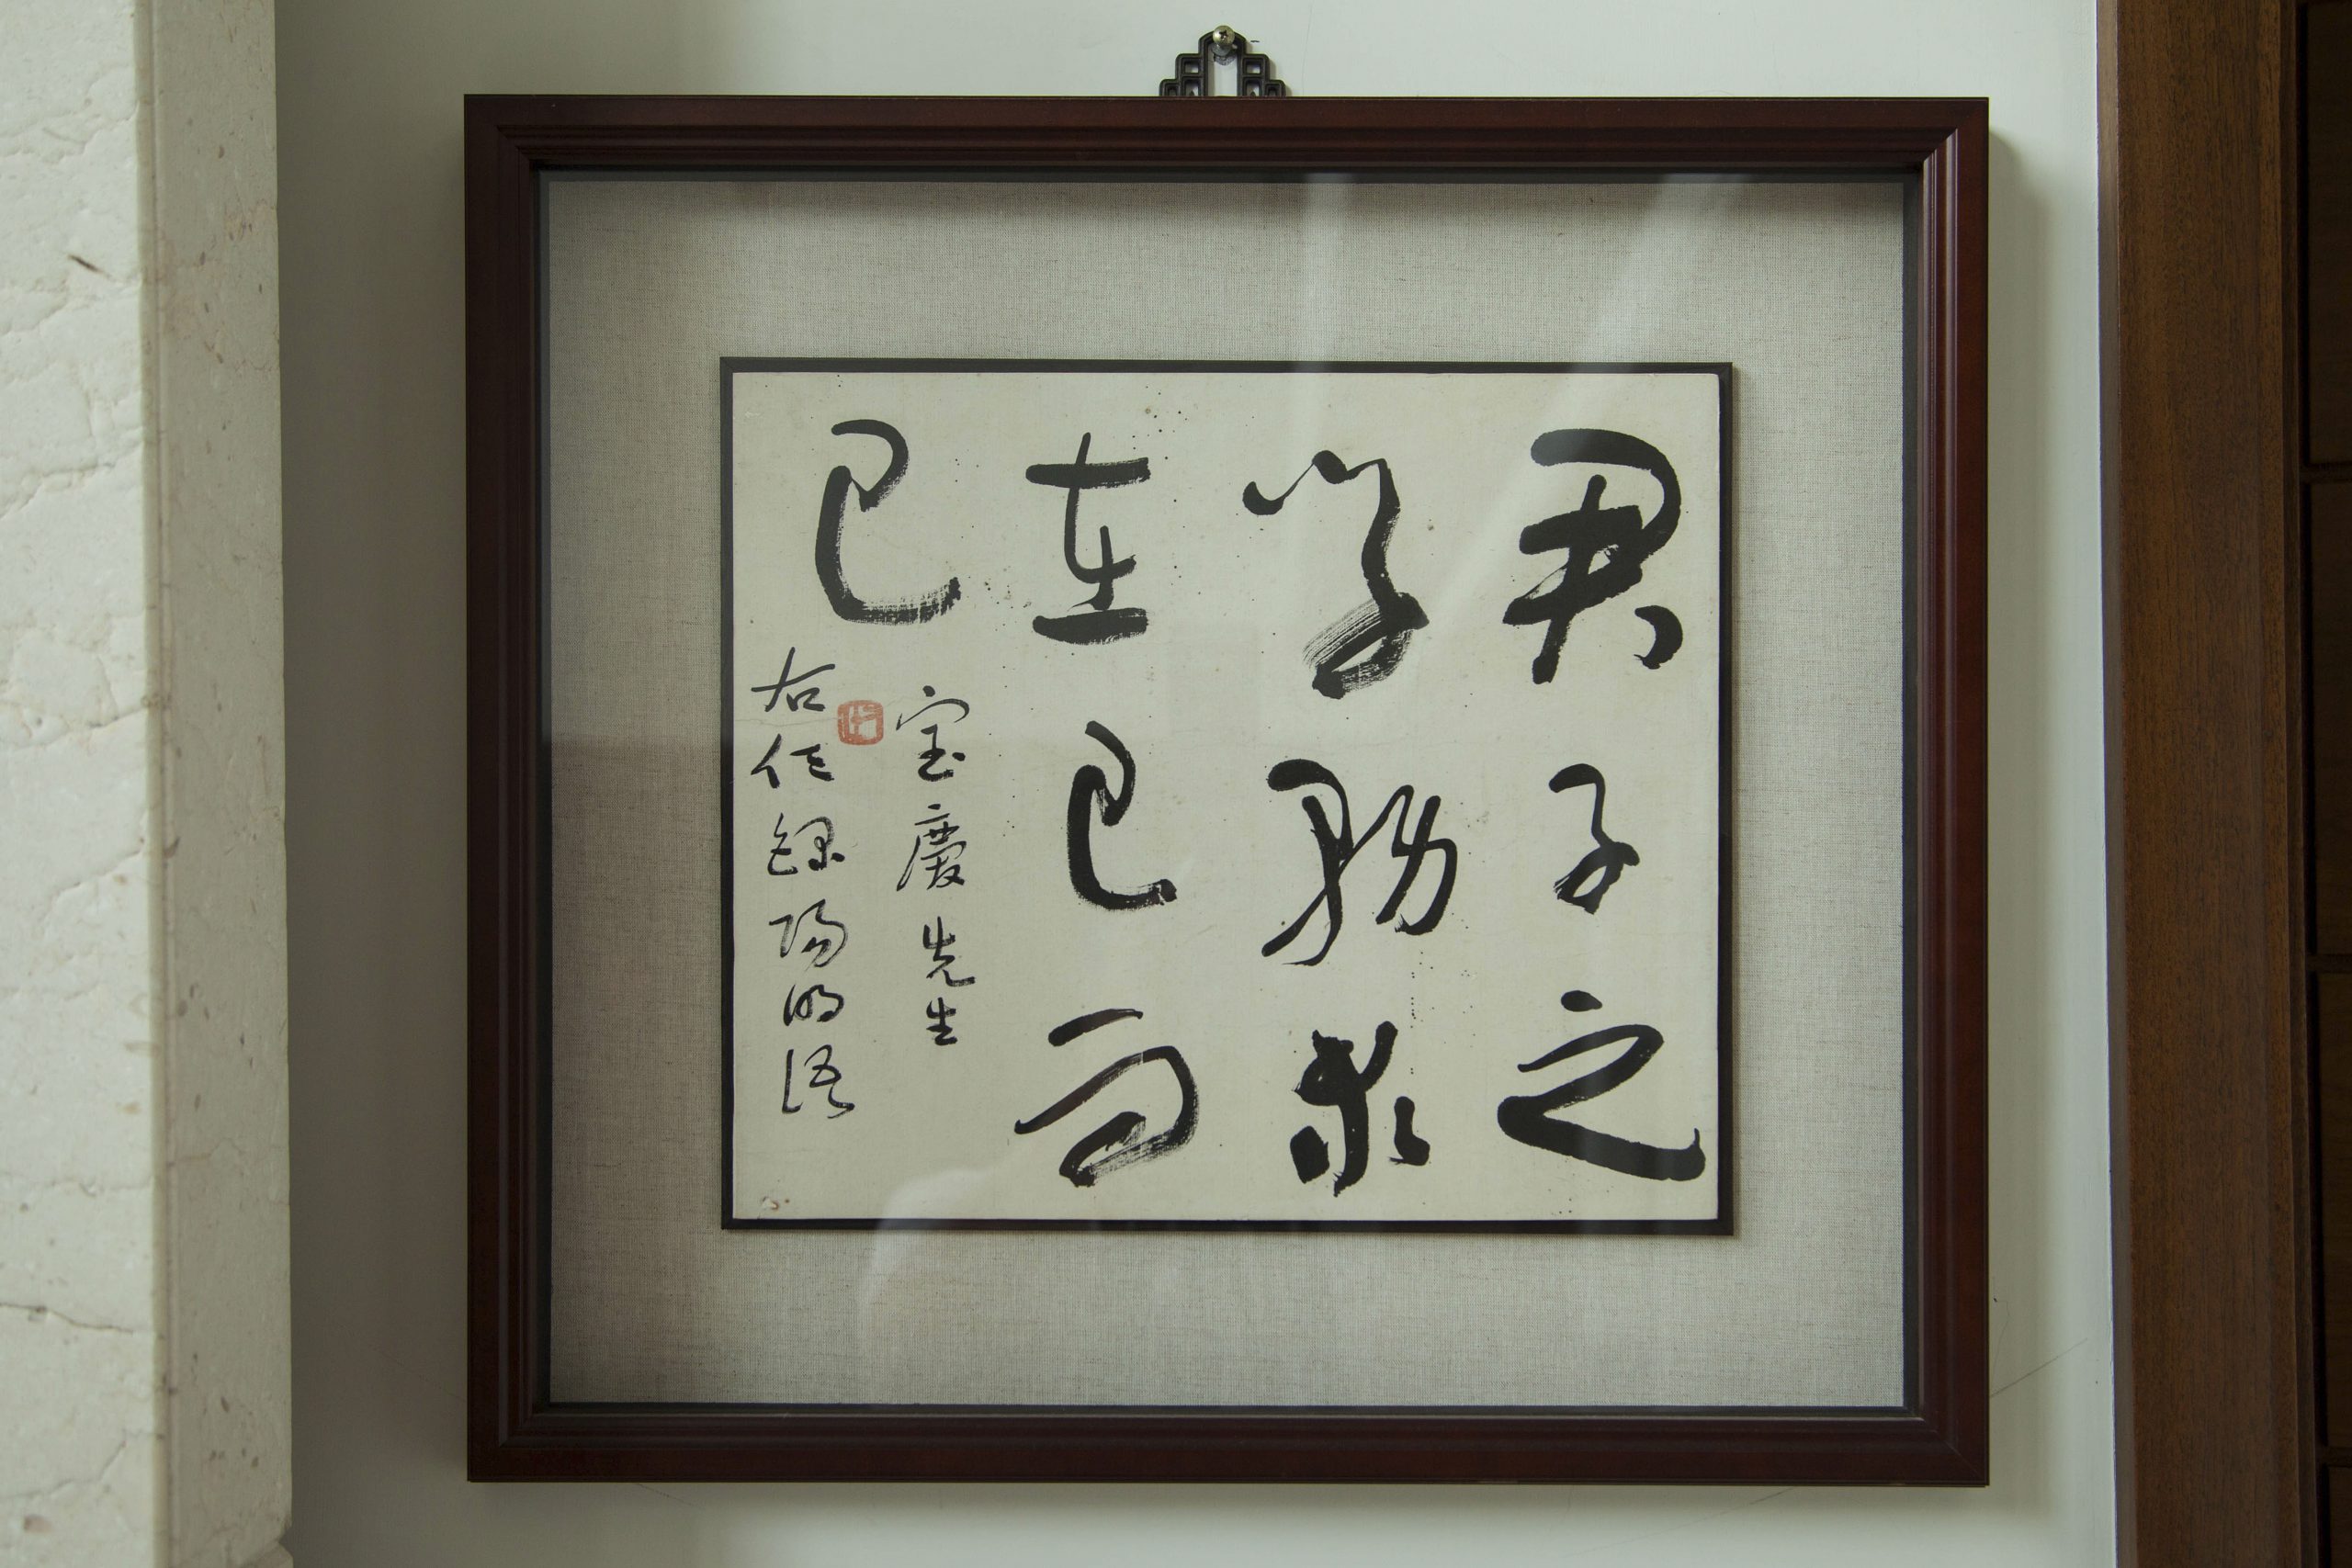 君子之
學務求
在己而
已
宝慶先生
右任錄陽明語